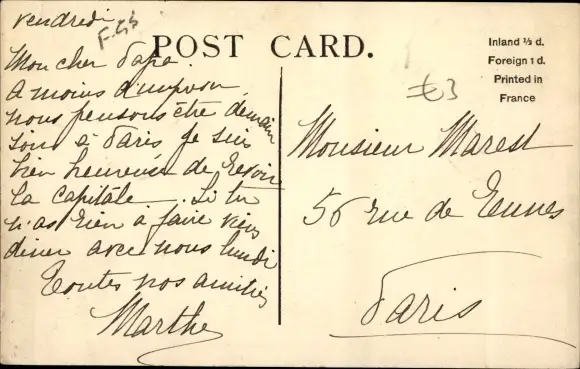 vendredi
POST CARD.
Inland ½ d.
Foreign 1 d.
Printed in
France
£3
Mon cher Papa
A moins d'imprévu
nous pensons être demain
soir à Paris je suis
bien heureuse de revoir
la capitale. Si tu
n'as rien à faire viens
diner avec nous lundi
Toutes nos amitiés
Marthe
Monsieur Marest
56 rue de
Paris